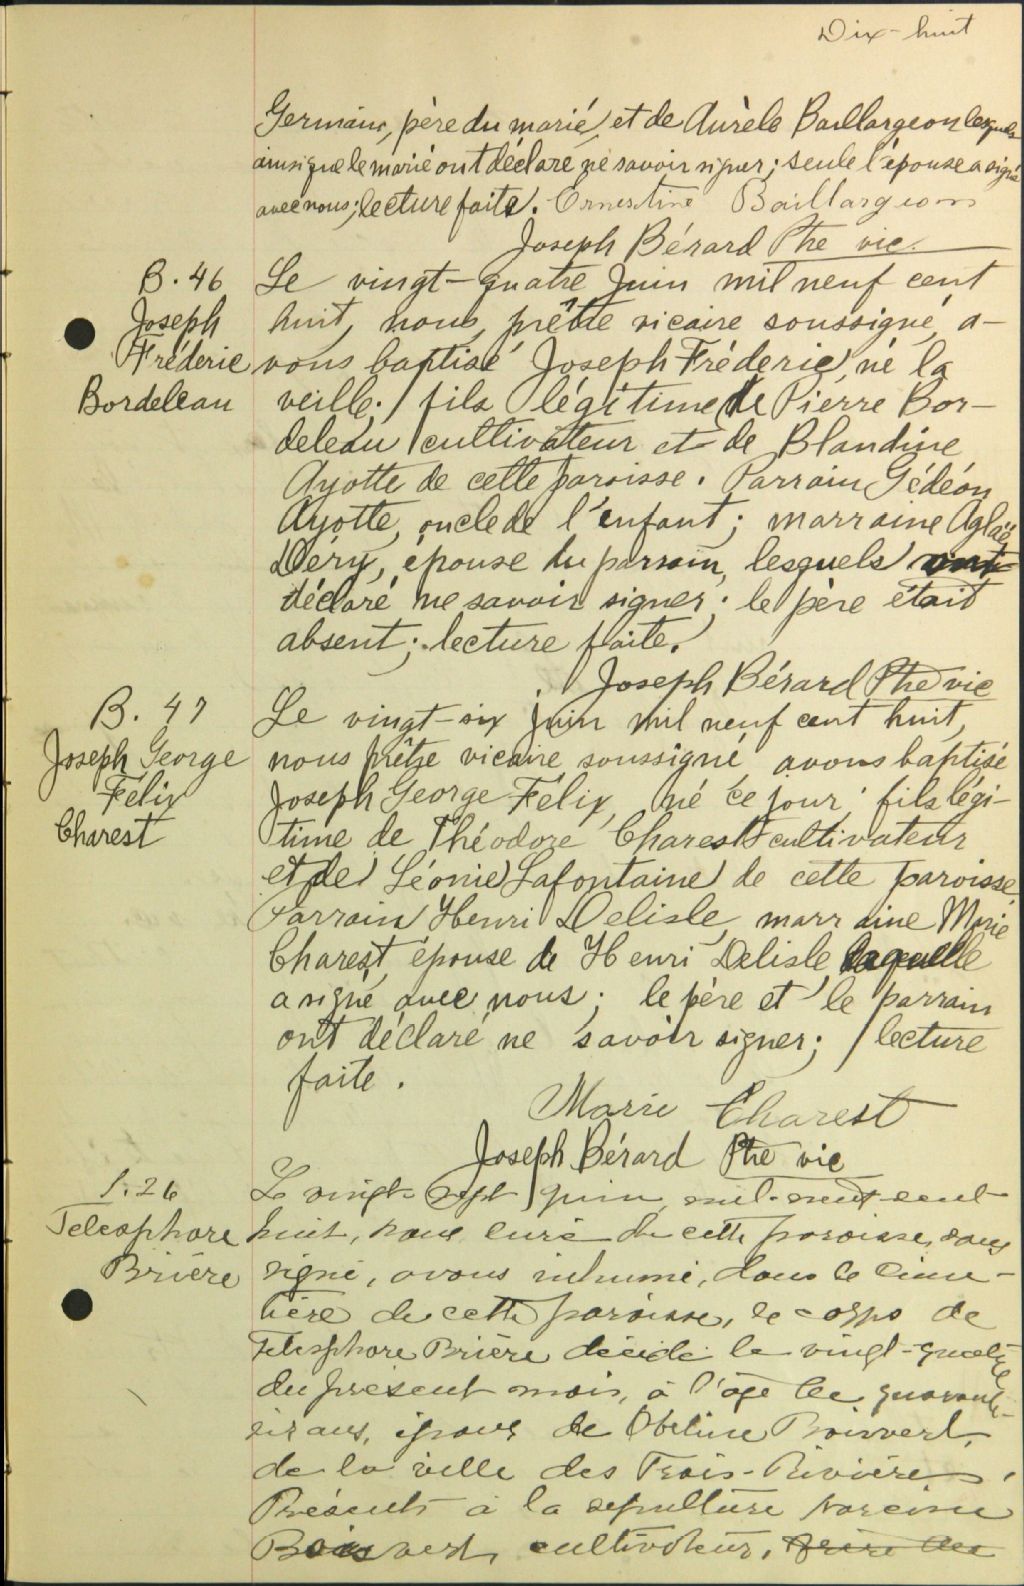 Dix-huit
Germain, père du marié, et de Aurèle Baillargeon lesquels
ainsi que le marié ont déclaré ne savoir signer; seule l'épouse a signé
avec nous; lecture faite. Ernestine Baillargeon
Joseph Bérard Ptre vic.
B. 46
Joseph
Fréderic
Bordeleau
Le vingt-quatre Juin mil neuf cent
huit, nous, prêtre vicaire soussigné, a-
vons baptisé Joseph Fréderic, né la
veille, fils légitime de Pierre Bor-
deleau cultivateur et de Blandine
Ayotte de cette paroisse. Parrain Gédéon
Ayotte, oncle de l'enfant; marraine Aglaë
Déry, épouse du parrain, lesquels ont
déclaré ne savoir signer; le père était
absent; lecture faite.
Joseph Bérard Ptre vic
B. 47
Joseph George
Felix
Charest
Le vingt-six juin mil neuf cent huit,
nous prêtre vicaire soussigné avons baptisé
Joseph George Félix, né ce jour, fils légi-
time de Théodore Charest cultivateur
et de Léonie Lafontaine de cette paroisse,
Parrain Henri Delisle, marraine Marie
Charest, épouse de Henri Delisle laquelle
a signé avec nous; le père et le parrain
ont déclaré ne savoir signer; lecture
faite.
Marie Charest
Joseph Bérard Ptre vic
S. 26
Telesphore
Brière
Le vingt-sept juin mil-neuf-cent
huit, nous curé de cette paroisse, sous
signé, avons inhumé, dans le cime-
tière de cette paroisse, le corps de
Telesphore Brière décédé le vingt-quatre
du présent mois, à l'âge de quarante-
six ans, époux de Obeline Boisvert,
de la ville des Trois-Rivières.
Présents à la sepulture Narcisse
Boisvert, cultivateur, frère des